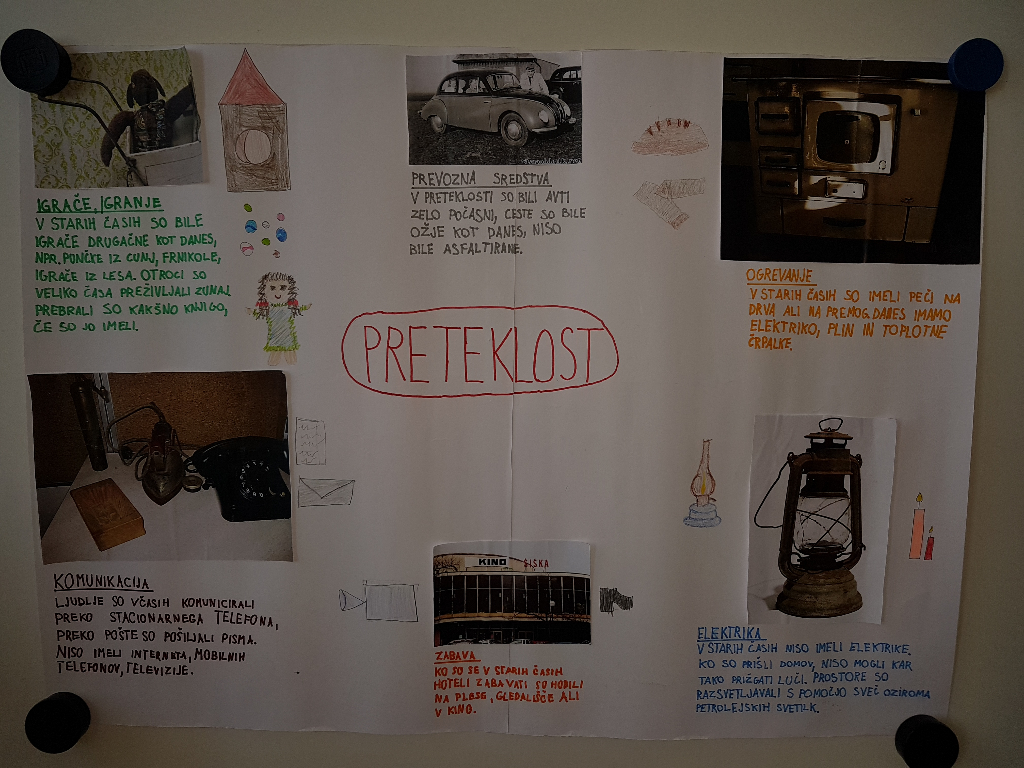 IGRAČE, IGRANJE
V STARIH ČASIH SO BILE
IGRAČE DRUGAČNE KOT DANES,
NPR. PUNČKE IZ CUNJ, FRNIKOLE,
IGRAČE IZ LESA. OTROCI SO
VELIKO ČASA PREŽIVLJALI ZUNAJ,
PREBRALI SO KAKŠNO KNJIGO,
ČE SO JO IMELI.
PREVOZNA SREDSTVA
V PRETEKLOSTI SO BILI AVTI
ZELO POČASNI, CESTE SO BILE
OŽJE KOT DANES, NISO
BILE ASFALTIRANE.
OGREVANJE
V STARIH ČASIH SO IMELI PEČI NA
DRVA ALI NA PREMOG. DANES IMAMO
ELEKTRIKO, PLIN IN TOPLOTNE
ČRPALKE.
PRETEKLOST
KOMUNIKACIJA
LJUDJE SO VČASIH KOMUNICIRALI
PREKO STACIONARNEGA TELEFONA,
PREKO POŠTE SO POŠILJALI PISMA.
NISO IMELI INTERNETA, MOBILNIH
TELEFONOV, TELEVIZIJE.
KINO ŠIŠKA
ZABAVA
KO SO SE V STARIH ČASIH
HOTELI ZABAVATI SO HODILI
NA PLESE, GLEDALIŠČE ALI
V KINO.
ELEKTRIKA
V STARIH ČASIH NISO IMELI ELEKTRIKE.
KO SO PRIŠLI DOMOV, NISO MOGLI KAR
TAKO PRIŽGATI LUČI. PROSTORE SO
RAZSVETLJAVALI S POMOČJO SVEČ OZIROMA
PETROLEJSKIH SVETILK.